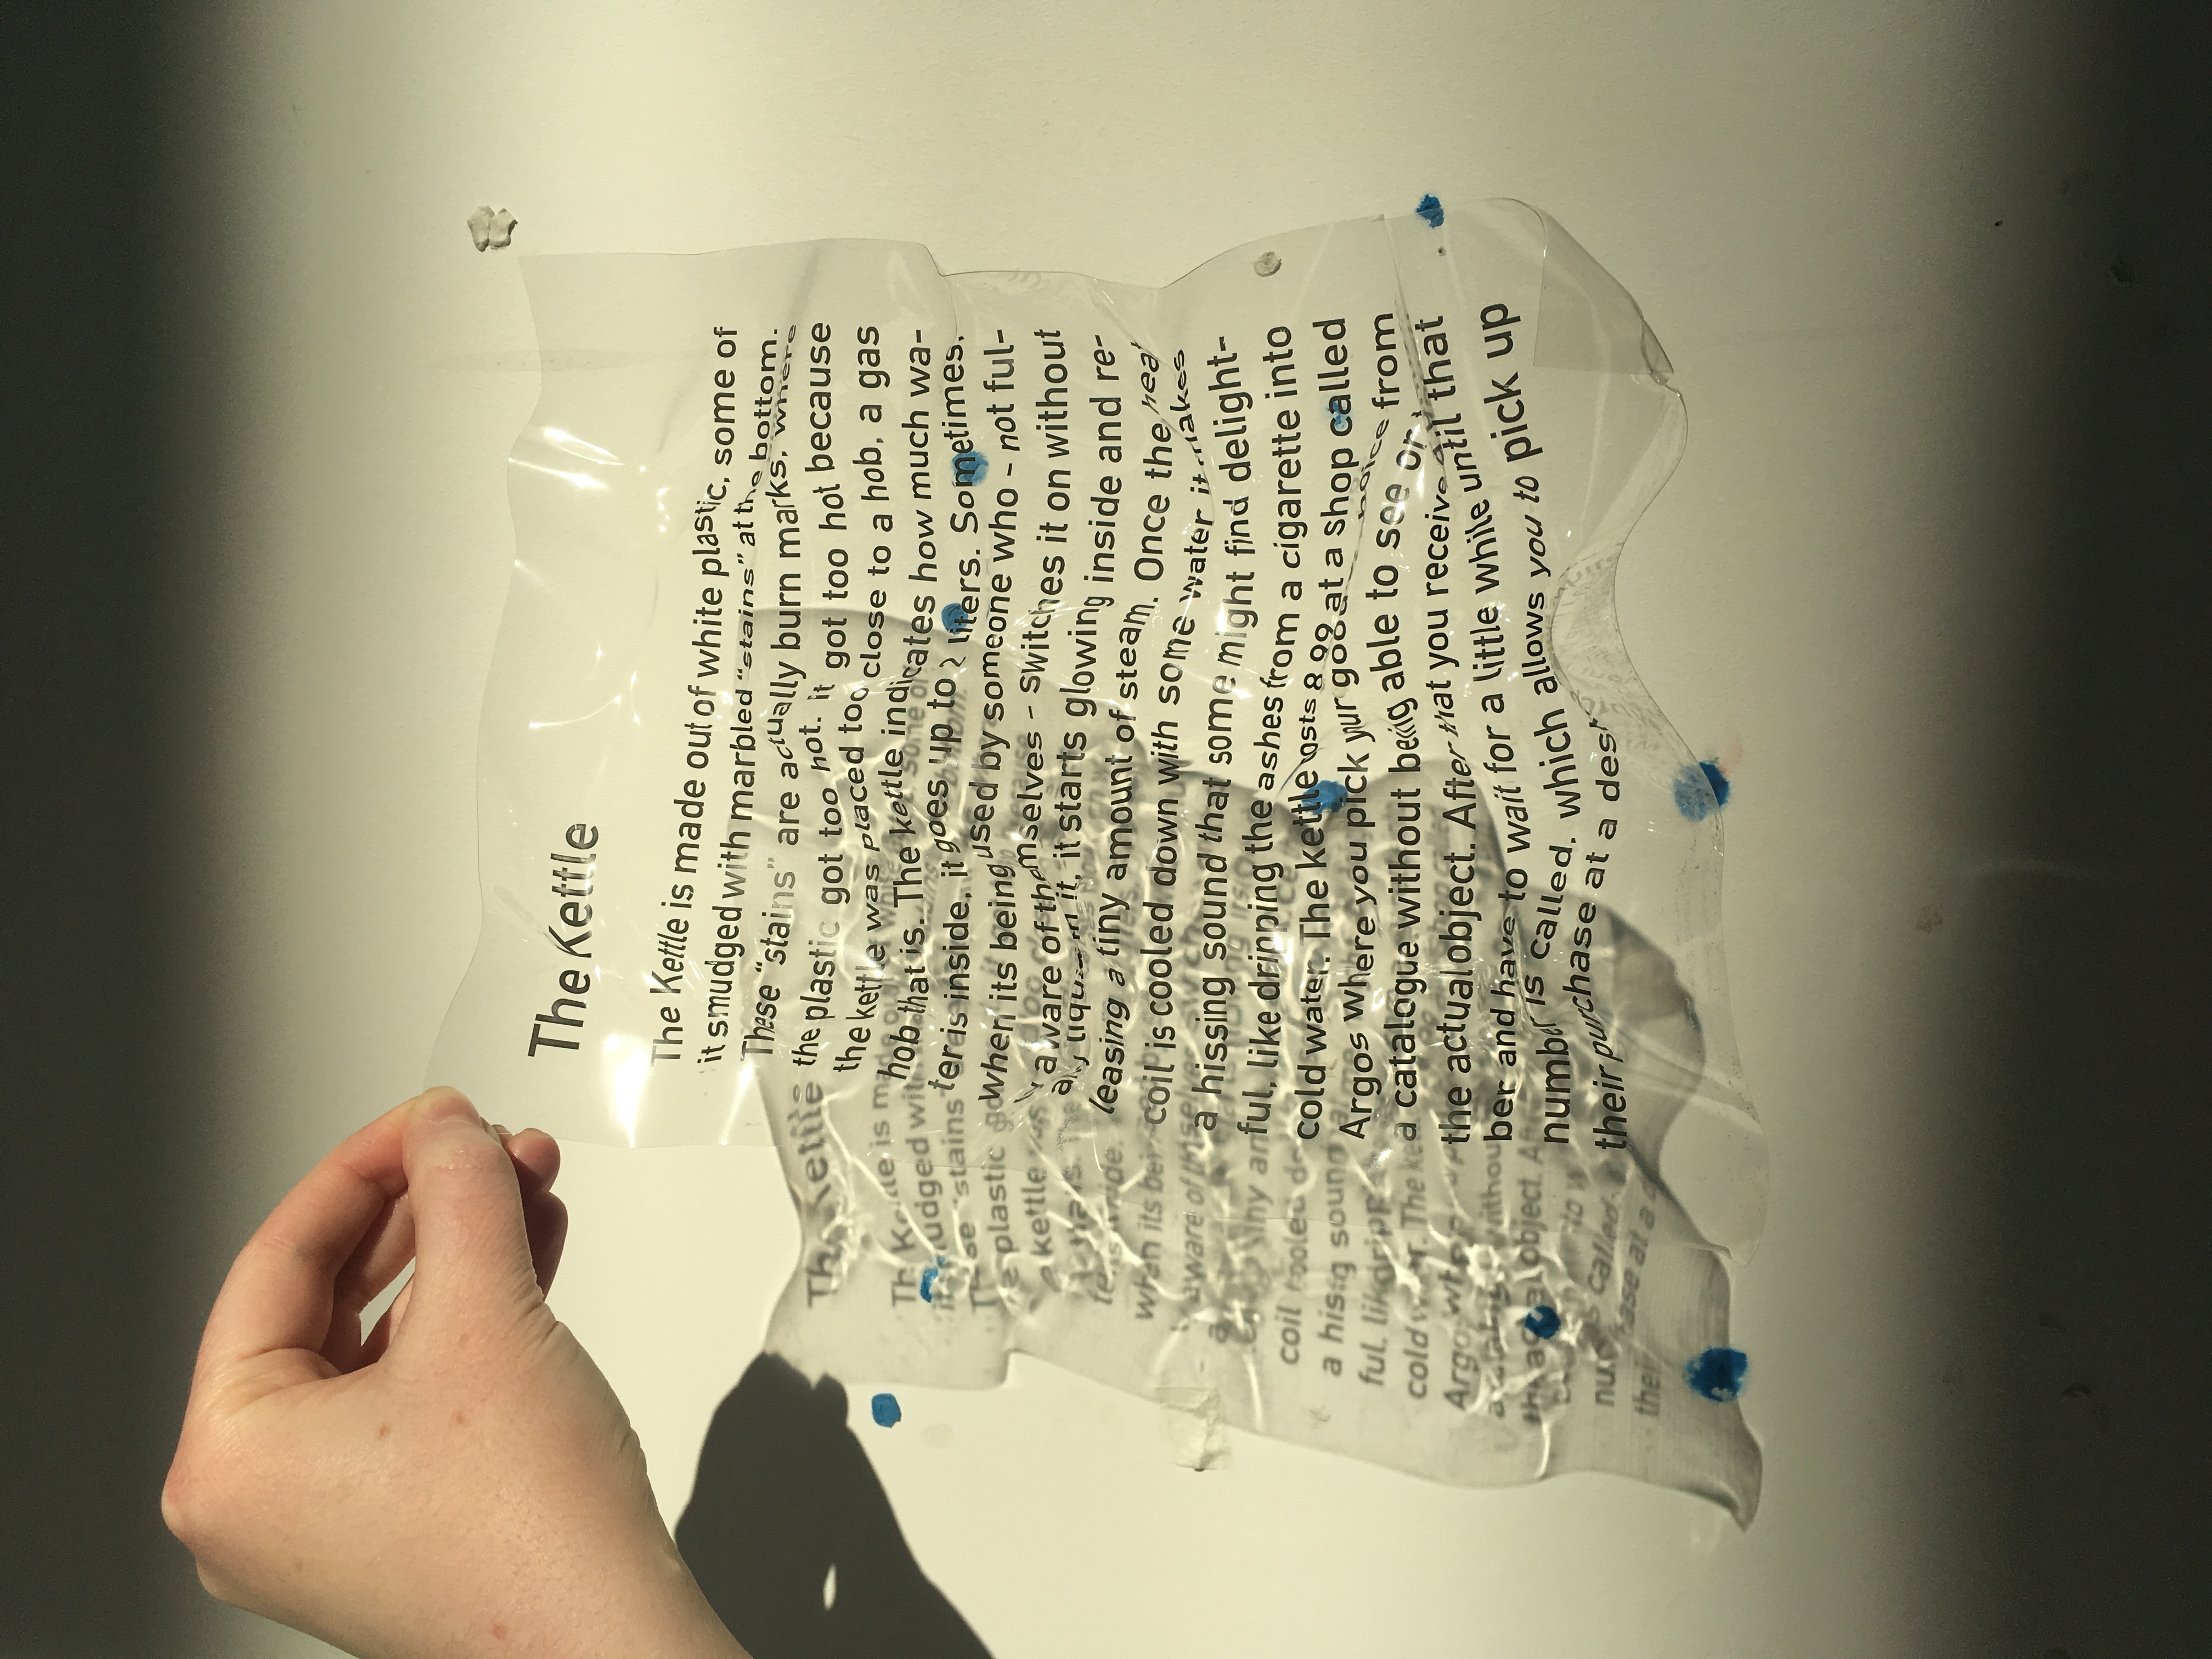 The Kettle
The Kettle is made out of white plastic, some of
it smudged with marbled “stains” at the bottom.
These “stains” are actually burn marks, where
the plastic got too hot. it got too hot because
the kettle was placed too close to a hob, a gas
hob that is. The kettle indicates how much wa-
ter is inside, it goes up to 2 liters. Sometimes,
when its being used by someone who - not ful-
y aware of themselves - switches it on without
any liquid in it, it starts glowing inside and re-
leasing a tiny amount of steam. Once the heat
coil is cooled down with some water it makes
a hissing sound that some might find delight-
ful, like dripping the ashes from a cigarette into
cold water. The kettle costs 8.99 at a shop called
Argos where you pick your good from
a catalogue without being able to see or
the actual object. After that you receive that
ber and have to wait for a little while until
number is called, which allows you to pick up
their purchase at a desk